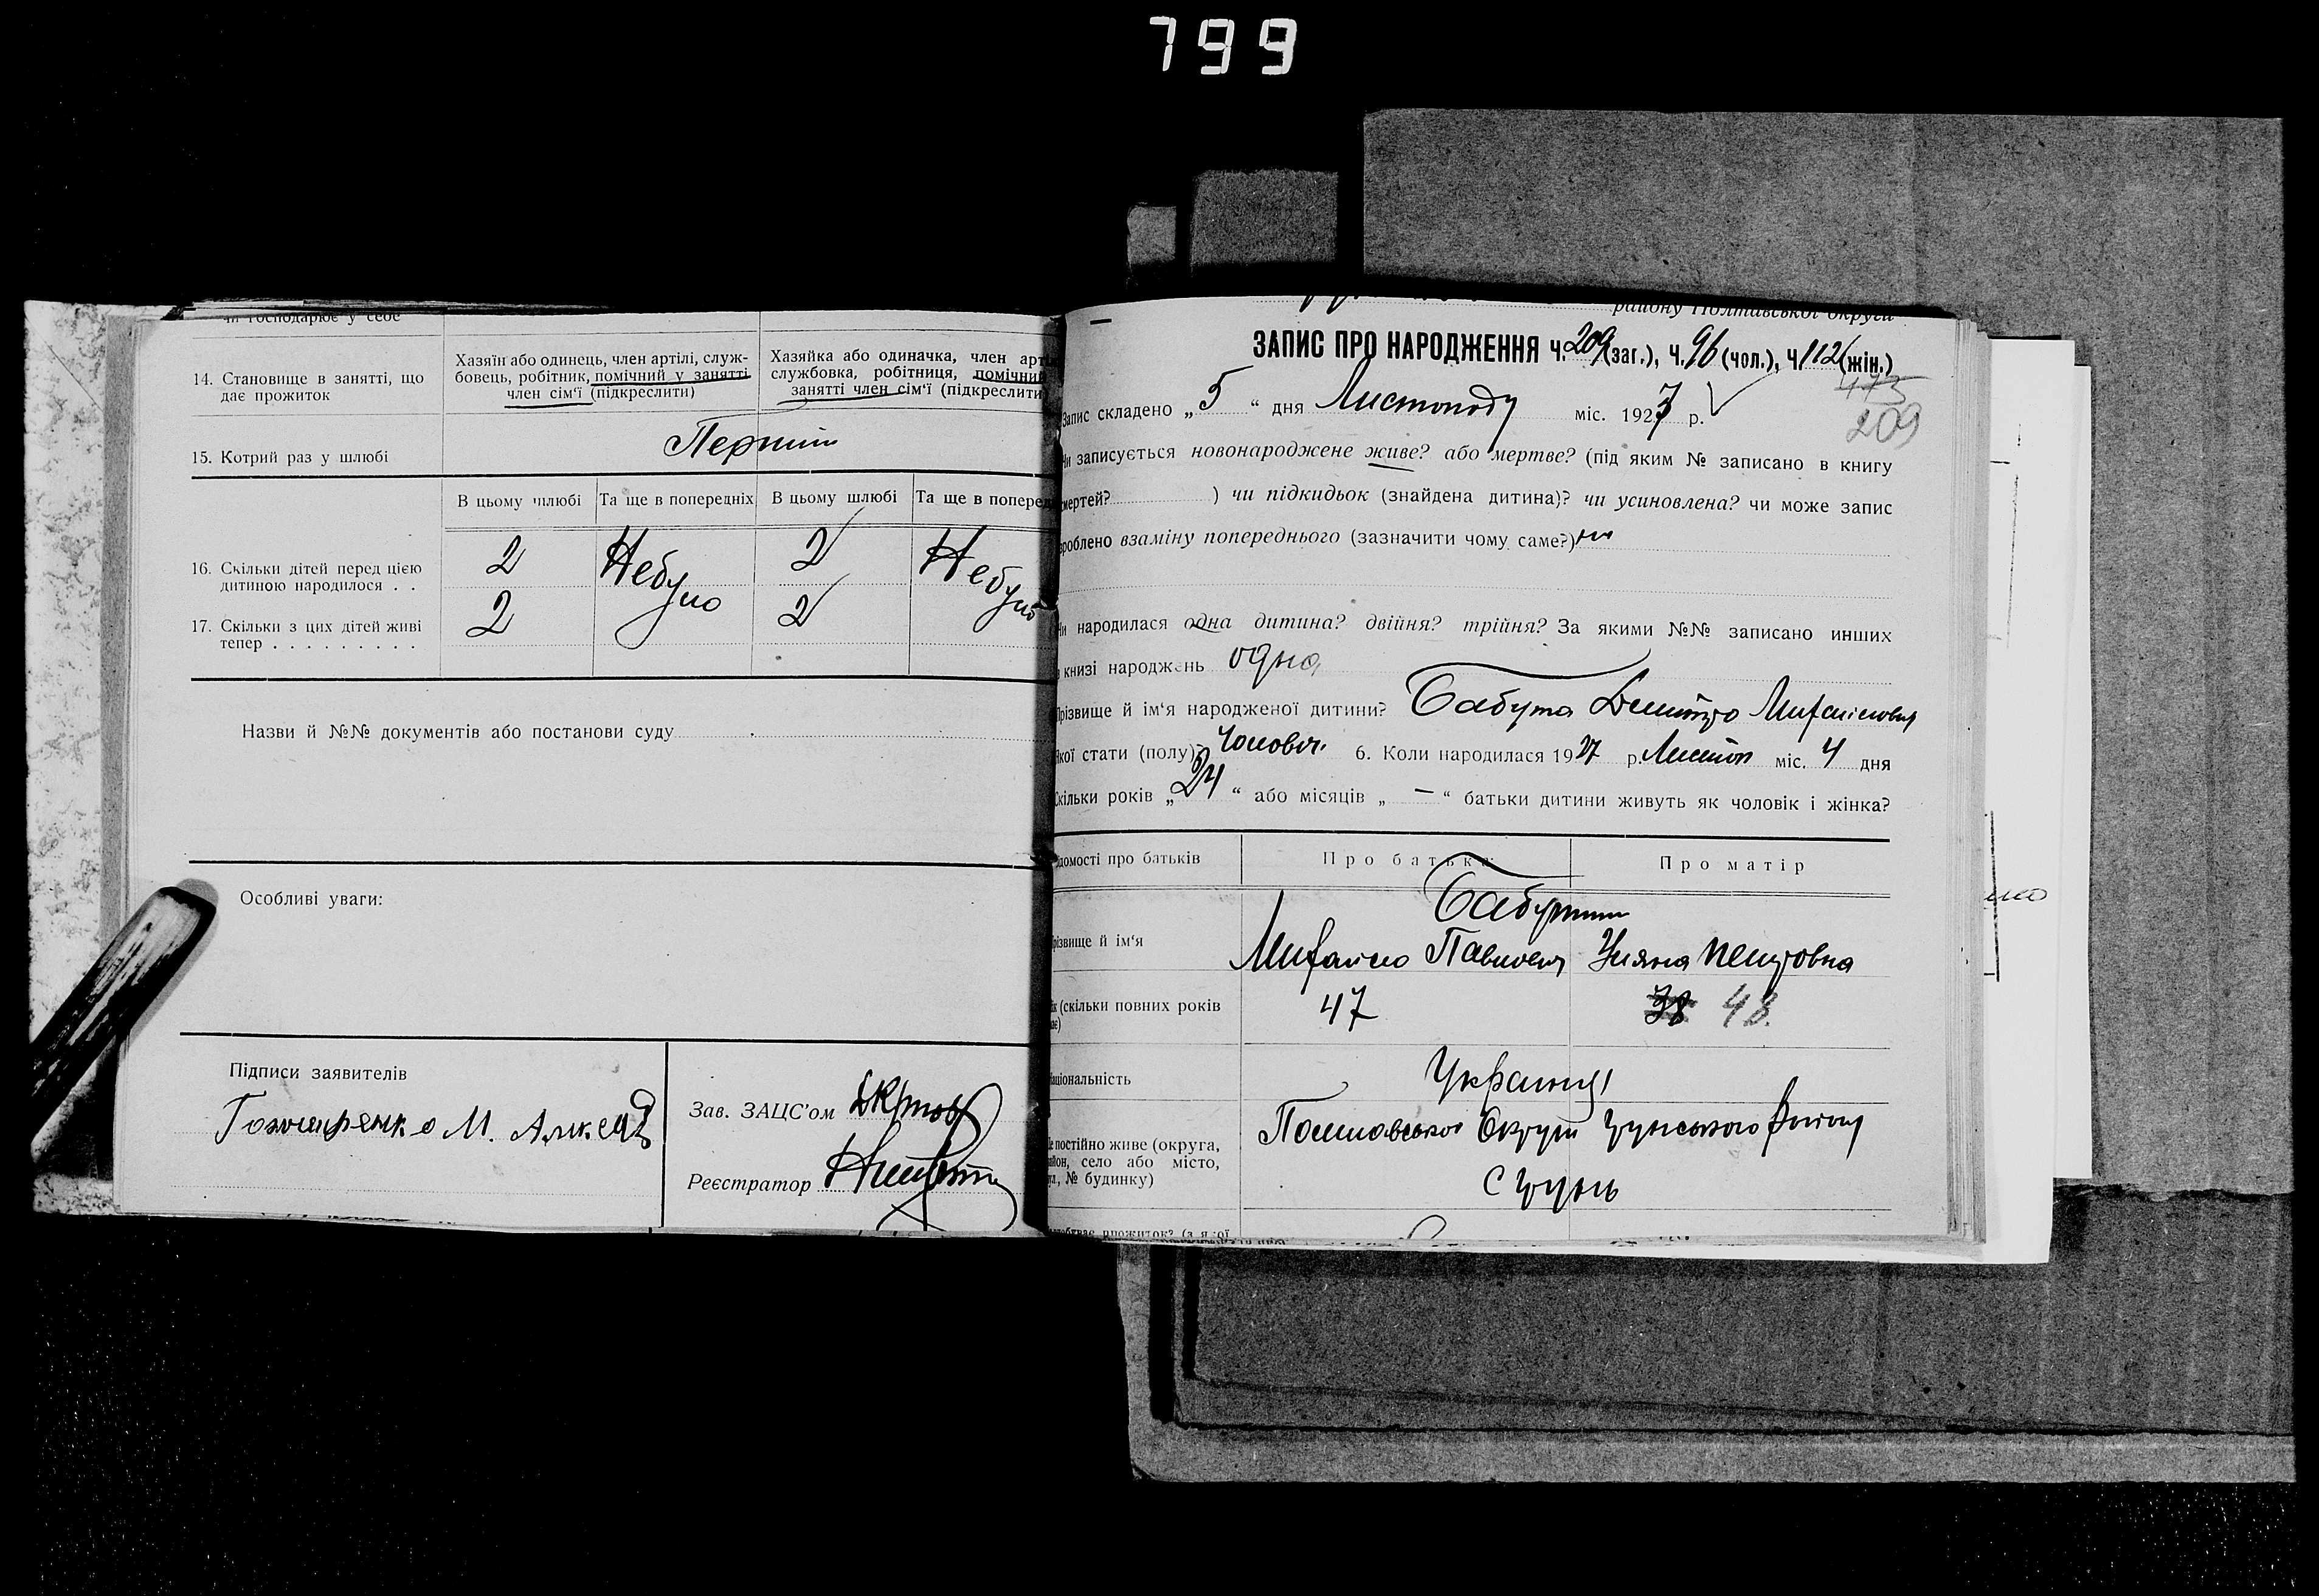 799
чи господарює у себе
14. Становище в занятті, що дає прожиток
Хазяїн або одинець, член артілі, служ-
бовець, робітник, помічний у занятті
член сім'ї (підкреслити)
Хазяйка або одиначка, член арт
службовка, робітниця, помічни
занятті член сім'ї (підкреслити
15. Котрий раз у шлюбі
Перший
В цьому шлюбі Та ще в попередніх В цьому шлюбі Та ще в поперед
16. Скільки дітей перед цією
дитиною народилося . .
2 Небуло 2 Небуло
17. Скільки з цих дітей живі
тепер . . . . . . . . .
2 2
Назви й №№ документів або постанови суду
Особливі уваги:
Підписи заявителів
М.
Зав. ЗАЦС'ом
Реєстратор
району Полтавської округи
ЗАПИС ПРО НАРОДЖЕННЯ Ч. 209 (заг.), Ч. 96 (чол.), Ч 112 (жін.)
209
Запис складено „ 5 “ дня Листопаду міс. 1927 р.
Чи записується новонароджене живе? або мертве? (під яким № записано в книгу
смертей? ) чи підкидьок (знайдена дитина)? чи усиновлена? чи може запис
зроблено взаміну попереднього (зазначити чому саме?)
Чи народилася одна дитина? двійня? трійня? За якими №№ записано инших
в книзі народжень одна
Прізвище й ім'я народженої дитини? Бабута Дмитро Михайлович
якої стати (полу)? Чоловіч. 6. Коли народилася 1927 р. Листоп міс. 4 дня
Скільки років „ 24 “ або місяців „ — “ батьки дитини живуть як чоловік і жінка?
ідомості про батьків Про батька Про матір
Бабути
різвище й ім'я
Михайло Павлович Уляна Петровна
ік (скільки повних років
має)
47 38 48.
аціональність
Українці
е постійно живе (округа,
айон, село або місто,
ул., № будинку)
Полтавської Округи Грунського району
с Грунь